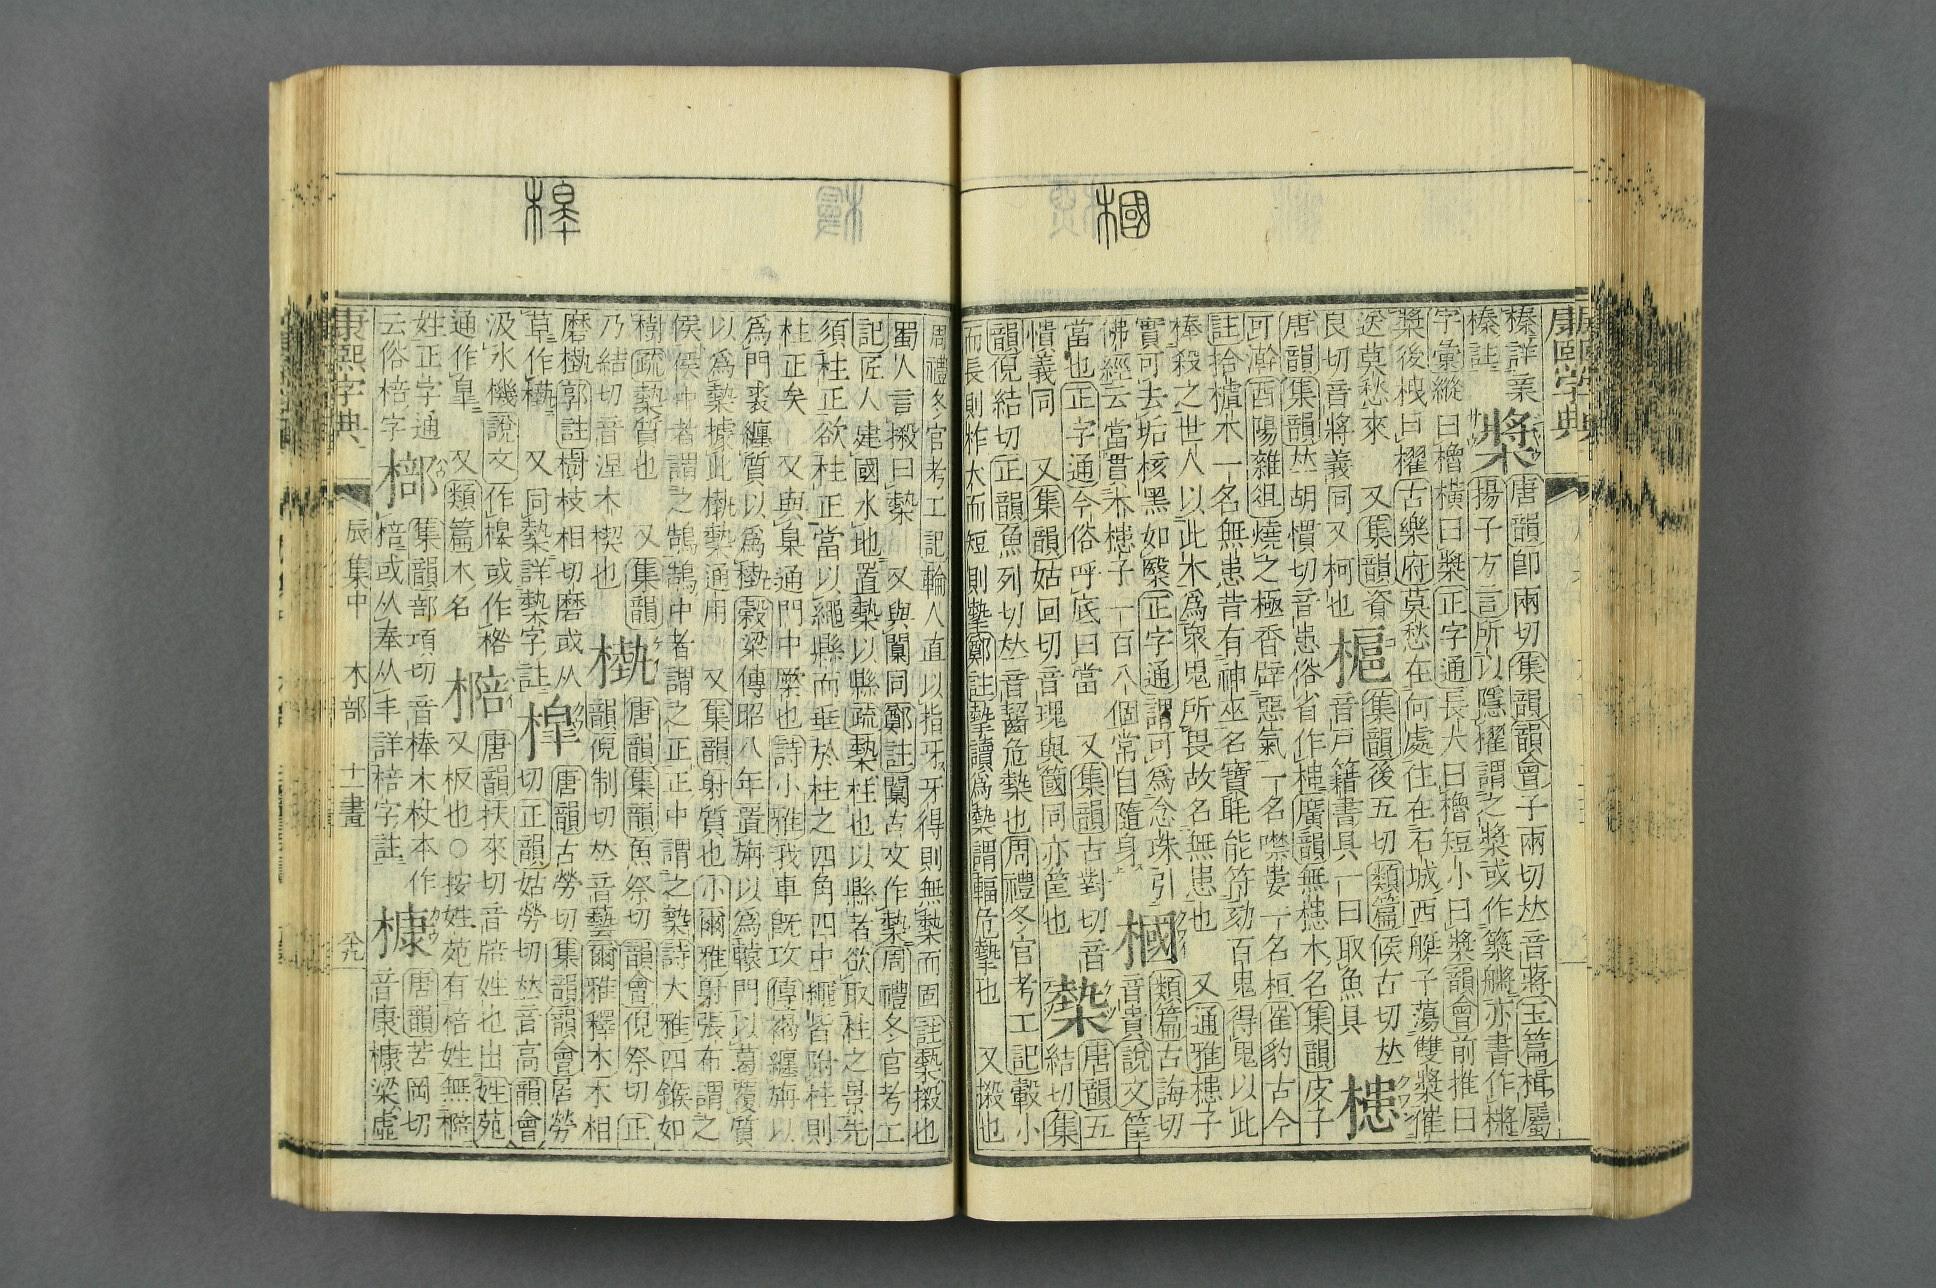 槶
康熙字典
榛詳業
榛註
槳
唐韻卽兩切集韻韻會子兩切𠀤音蔣玉篇楫屬
揚子方言所以隱櫂謂之槳或作𥳾艡亦書作樣
字彙縱曰櫓橫曰槳正字通長大曰櫓短小曰槳韻會前推曰
槳後曳曰櫂古樂府莫愁在何處往在石城西艇子蕩雙槳催
送莫愁來 又集韻資
良切音將義同又柯也
槴
集韻後五切類篇候古切𠀤
音戸籍書具一曰取魚具
槵
唐韻集韻𠀤胡慣切音患俗省作槵廣韻無槵木名集韻皮子
可澣酉陽雜俎燒之極香辟惡氣一名噤婁一名桓崔豹古今
註拾櫨木一名無患昔有神巫名寶眊能符劾百鬼得鬼以此
棒殺之世人以此木爲衆鬼所畏故名無患也 又通雅槵子
實可去垢核黑如㙠正字通謂可爲念珠引
佛經云當貫木槵子一百八個常自隨身
槶
類篇古誨切
音貴說文筐
當也正字通今俗呼底曰當 又集韻古對切音
憒義同 又集韻姑回切音瑰與簂同亦筐也
槷
唐韻五
結切集
韻倪結切正韻魚列切𠀤音齧危槷也周禮冬官考工記轂小
而長則柞大而短則摯鄭註摯讀爲槷謂輻危摯也 又摋也
槹
周禮冬官考工記輪人直以指牙牙得則無槷而固註槷摋也
蜀人言摋曰槷 又與闑同鄭註闑古文作槷周禮冬官考工
記匠人建國水地置槷以縣疏槷柱也以縣者欲取柱之景先
須柱正欲柱正當以繩縣而垂於柱之四角四中繩皆附柱則
柱正矣 又與臬通門中橜也詩小雅我車旣攻傳褐纏旃以
爲門裘纏質以爲槸穀梁傳昭八年置旃以爲轅門以葛覆質
以爲槷據此槸槷通用 又集韻射質也小爾雅射張布謂之
侯侯中者謂之鵠鵠中者謂之正正中謂之槷詩大雅四鍭如
樹疏槷質也 又集韻
乃結切音涅木楔也
槸
唐韻集韻魚祭切韻會倪祭切正
韻倪制切𠀤音藝爾雅釋木木相
磨槸郭註樹枝相切磨或从
草作㰊 又同槷詳槷字註
槹
唐韻古勞切集韻韻會居勞
切正韻姑勞切𠀤音高韻會
汲水機說文作橰或作𣓌
通作皐 又類篇木名
㯁
唐韻扶來切音陪姓也出姓苑
又板也○按姓苑有棓姓無㯁
姓正字通
云俗棓字
㮄
集韻部項切音棒木杖本作
棓或从奉从丰詳棓字註
槺
唐韻苦岡切
音康槺梁虛
康熙字典
辰集中 木部 十一畫